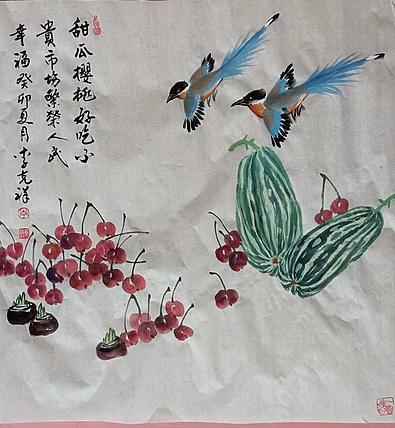 甜瓜樱桃好吃不
貴市场繁榮人民
幸福癸卯夏月李克祥